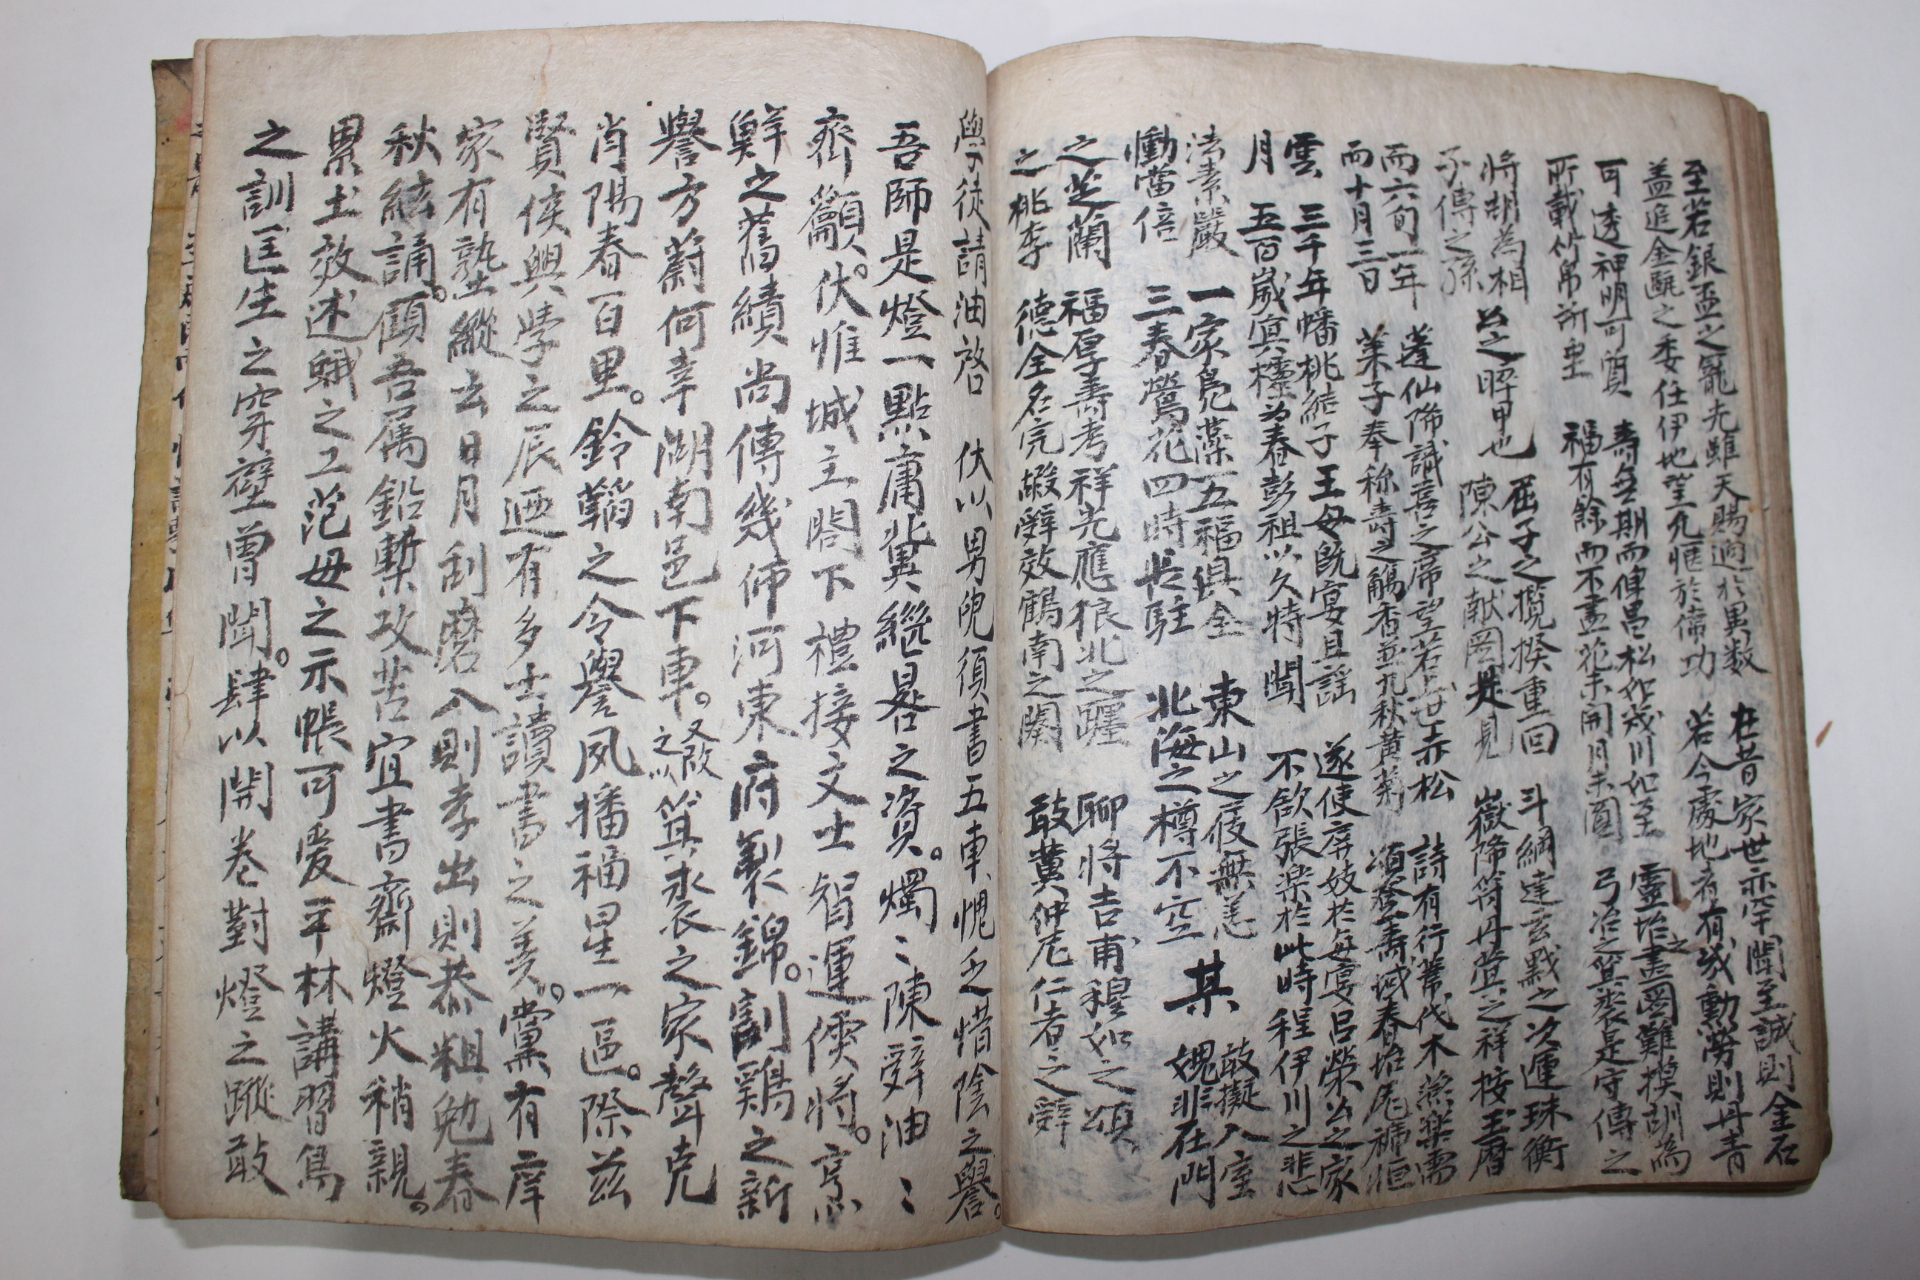 至若銀盃之寵光雖天賜逈於異数
盖追金甌之委任伊地望允愜於儔功
在昔家世亦罕聞至誠則金石
若今處地者有幾勳勞則丹青
可透神明可質
所載竹帛所垂
壽無期而俾昌松如茂川如至
福有餘而不盡花未開月未圓
靈怡之畫圖難摸訓為
弓冶之箕裘是守傳之
將胡為相
子傳之孫
公之晬甲也
屈子之攬揆重回
陳公之献圖是見
斗綱建玄戣之次運珠衡
嶽降符丹萱之祥按玉曆
而六旬一年
而十月三日
蓬仙降誠喜之席望若世赤松
菜子奉称壽之觴香並九秋黄菊
詩有行葦伐木燕楽需
頌登壽域春坮尾禘
雲 三千年幡桃結子
月 五百歲冥樁為春
王母旣宴且謡
彭祖以久特聞
遂使屏妓於每宴呂榮公之家
不飲張楽於此時程伊川之悲
法素嚴
慟當倍
一家鳧藻五福俱全
三春鶯花四時長駐
東山之屐無恙
北海之樽不空
某
敢擬入室
媿非在門
之芝蘭
之桃李
福厚壽考祥光應狼北之躔
德全名完嘏辭效鶴南之闋
聊將吉甫穆如之頌
敢冀仲尼仁者之辭
學徒請油啓 伏以男兒須書五車愧乏惜陰之譽。
吾師是燈一點庸冀繼晷之資。燭〻陳辭油〻
齊籲。伏惟城主閤下禮接文士智運儒將。烹
鮮之舊績尚傳幾伂河東府製錦。割鷄之新
譽方蔚何幸湖南邑下車。又改之以箕裘之家聲克
肖陽春一百里。鈴韜之令譽夙播福星一區。際玆
賢侯興學之辰迺有多士讀書之羙。黨有庠
家有塾縱去日月刮磨入則孝出則恭粗勉春
秋絃誦。顧吾属鉛槧攻苦宜書齋燈火稍親。
累土效述蛾之工范母之示帳可爱平林講習為
之訓匡生之穿壁曾聞。肆以開卷對燈之蹤敢